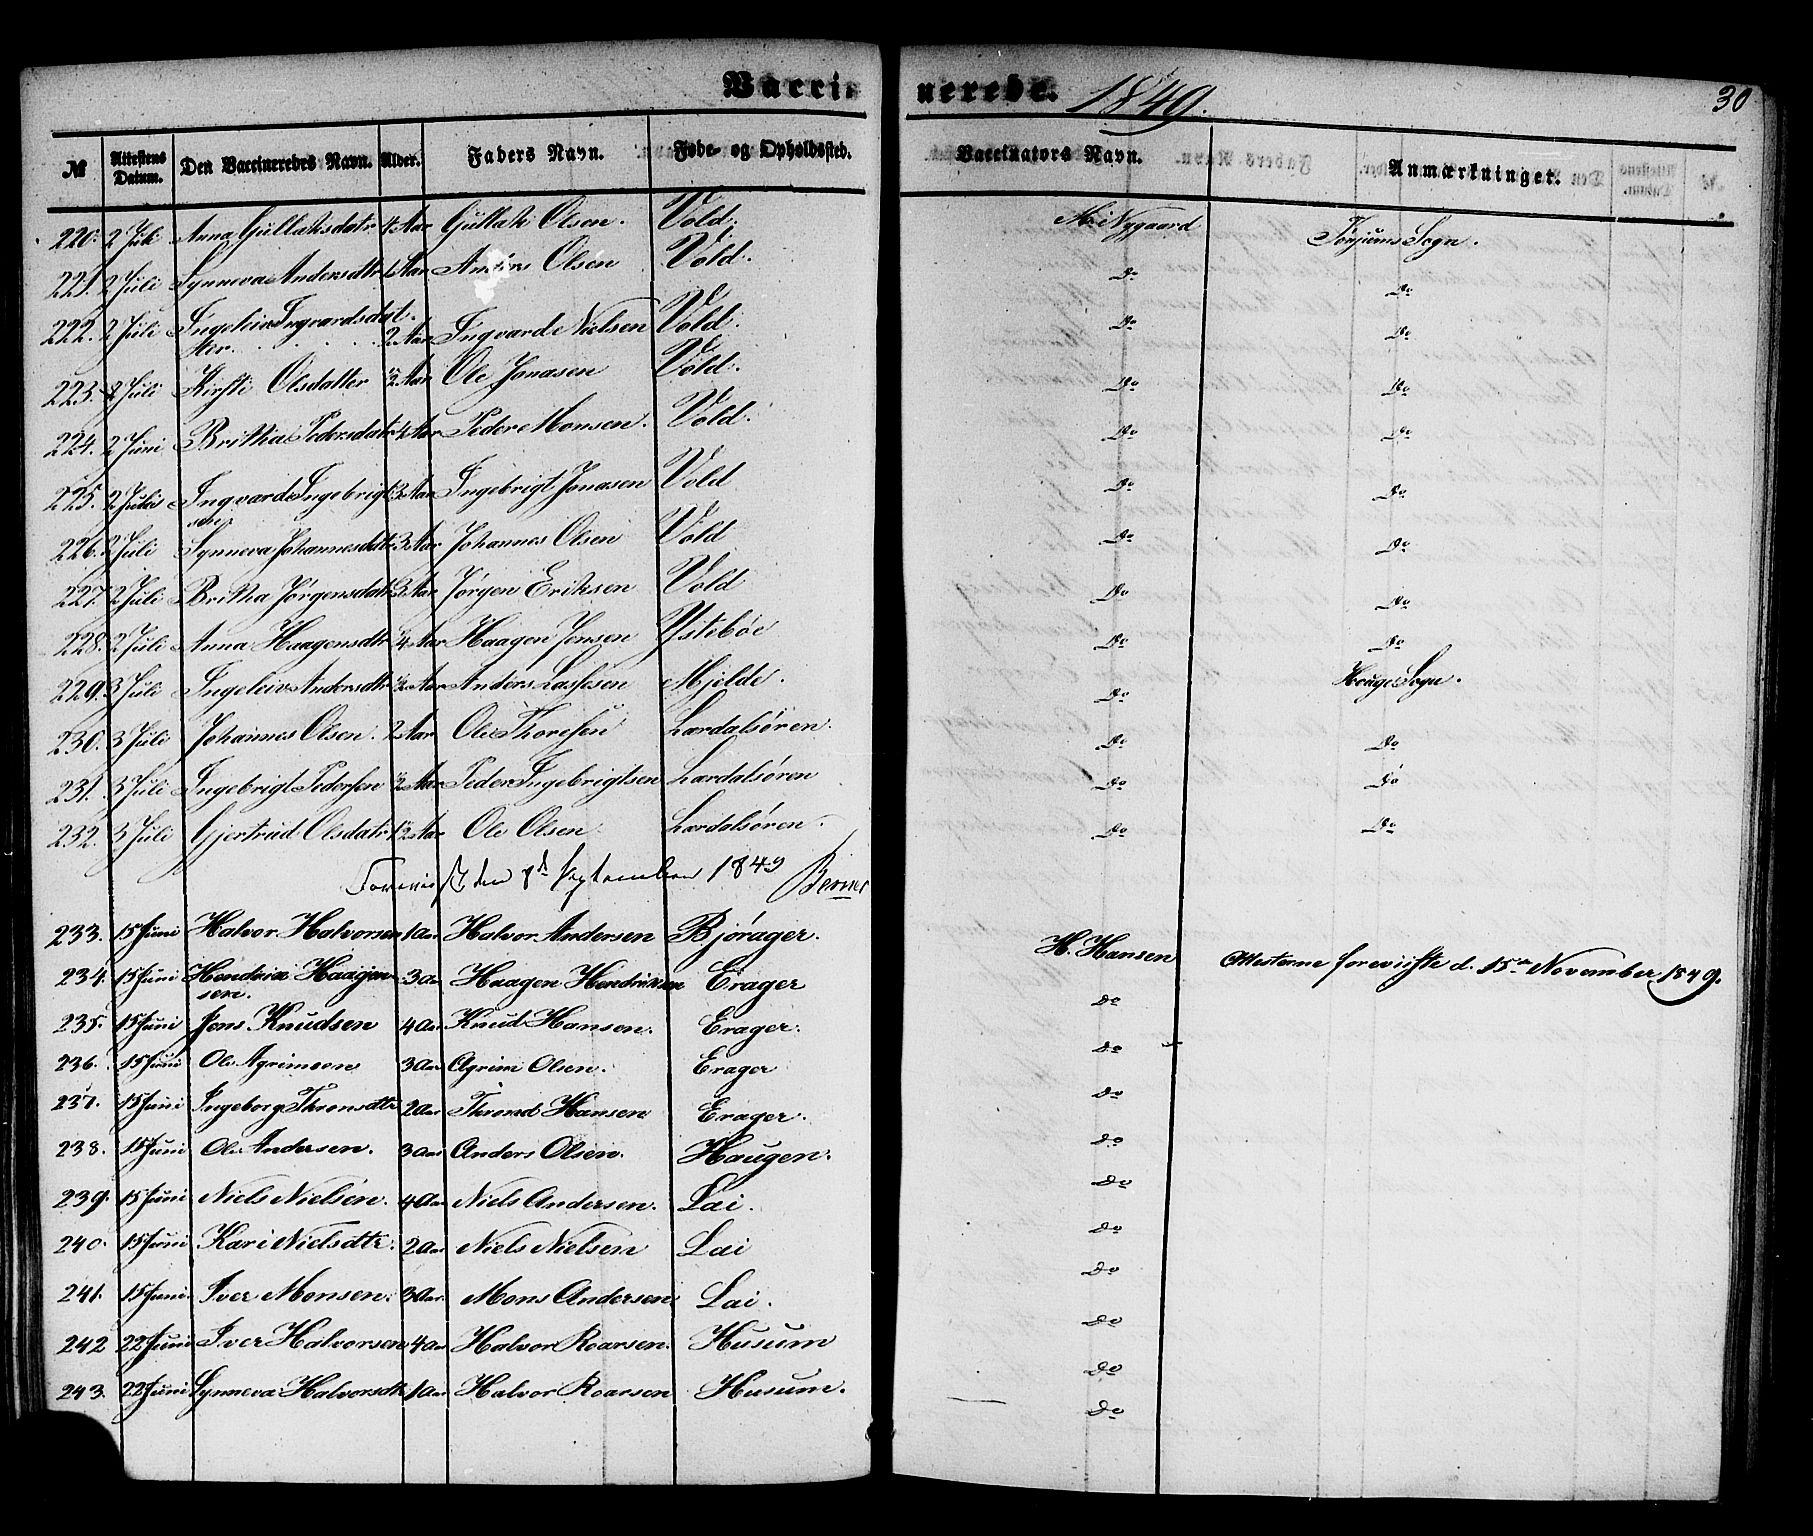 Vaccinerede. 1849. 30
№ Attestens Datum. Den Vaccineredes Navn. Alder. Faders Navn. Føde- og Opholdssted. Vaccinators Navn. Anmærkninger.
220. 2 Juli Anna Gullaksdatr 4 Aar Gullak Olsen. Vold. Nygaard Tønjums Sogn.
221. 2 Juli Synneva Andersdtr 1 Aar Anders Olsen Vold. Do Do
222. 2 Juli Ingeleiv Ingvardsdat-
ter. 2 Aar Ingvard Nielsen Vold. Do Do
223. 2 Juli Kirsti Olsdatter ½ Aar Ole Jonasen Vold. Do Do
224. 2 Juni Britha Pedersdatr ¼ Aar Peder Monsen. Vold. Do Do
225. 2 Juli Ingvard Ingebrigt-
sen 3 Aar Ingebrigt Jonasen Vold Do Do
226. 2 Juli Synneva Johannesdtr 3 Aar Johannes Olsen Vold Do Do
227. 2 Juli Britha Jørgensdatr 3 Aar Jørgen Eriksen Vold Do Do
228. 2 Juli Anna Haagensdtr ¼ Aar Haagen Jensen Ystebøe Do Do
229. 3 Juli Ingeleiv Andersdtr ½ Aar Anders Lassesen Mjelde. Do Houge Sogn.
230. 3 Juli Johannes Olsen. 2 Aar Ole Thoresen Lærdalsøren. Do Do
231. 3 Juli Ingebrigt Pedersen ½ Aar Peder Ingebrigtsen Lærdalsøren Do Do
232. 3 Juli Gjertrud Olsdatr 1½ Aar Ole Olsen. Lærdalsøren. Do Do
Foreviist den 8d September 1849 Berner
233. 15 Juni Halvor Halvorsen 1 Aar Halvor Andersen Bjørager. H. Hansen Attesterne foreviiste d. 15de November 1849.
234. 15 Juni Hendrik Haagen-
sen. 3 Aar Haagen Hendriksen Erager do
235. 15 Juni Jens Knudsen 4 Aar Knud Hansen. Erager. do
236. 15 Juni Ole Agrimsen 3 Aar Agrim Olsen. Erager do
237. 15 Juni Ingeborg Thronsdtr 2 Aar Thrond Hansen Erager. do
238. 15 Juni Ole Andersen. 3 Aar Anders Olsen. Haugen. do
239. 15 Juni Niels Nielsen. 4 Aar Niels Andersen. Lai. do
240. 15 Juni Kari Nielsdtr. 2 Aar Niels Nielsen Lai do
241. 15 Juni. Iver Monsen. 3 Aar Mons Andersen Lai. do
242 22 Juni Iver Halvorsen 4 Aar Halvor Roarsen. Husum do
243. 22 Juni Synneva Halvorsdtr 1 Aar Halvor Roarsen Husum. do